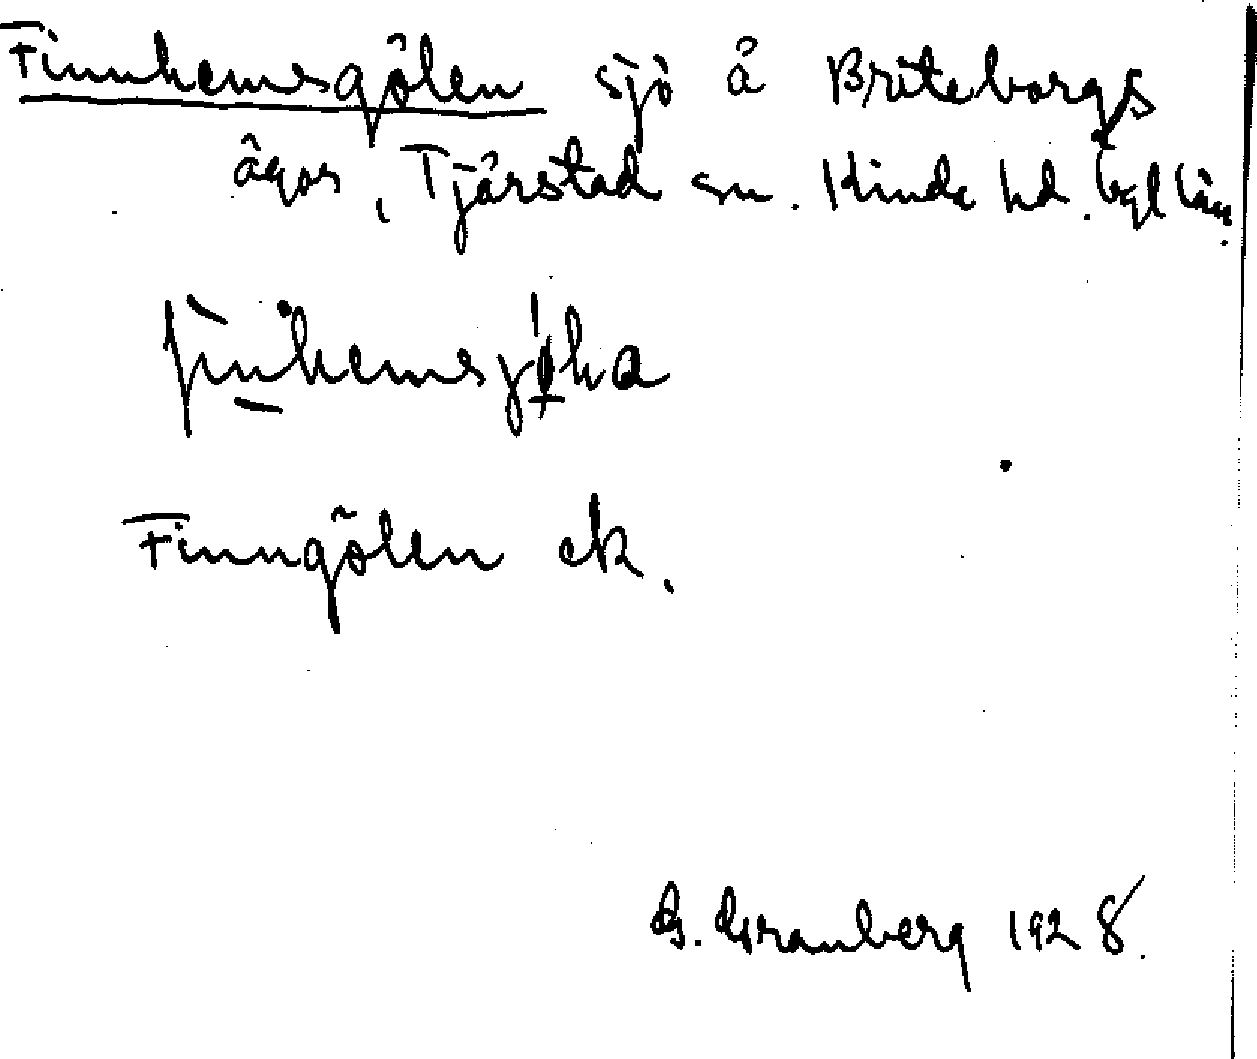 Finnhemsgölen sjö å Briteborgs
ägor, Tjärstad sn. Kinda hd. Ögl län.
Finngölen ek.
G. Granberg 1928.